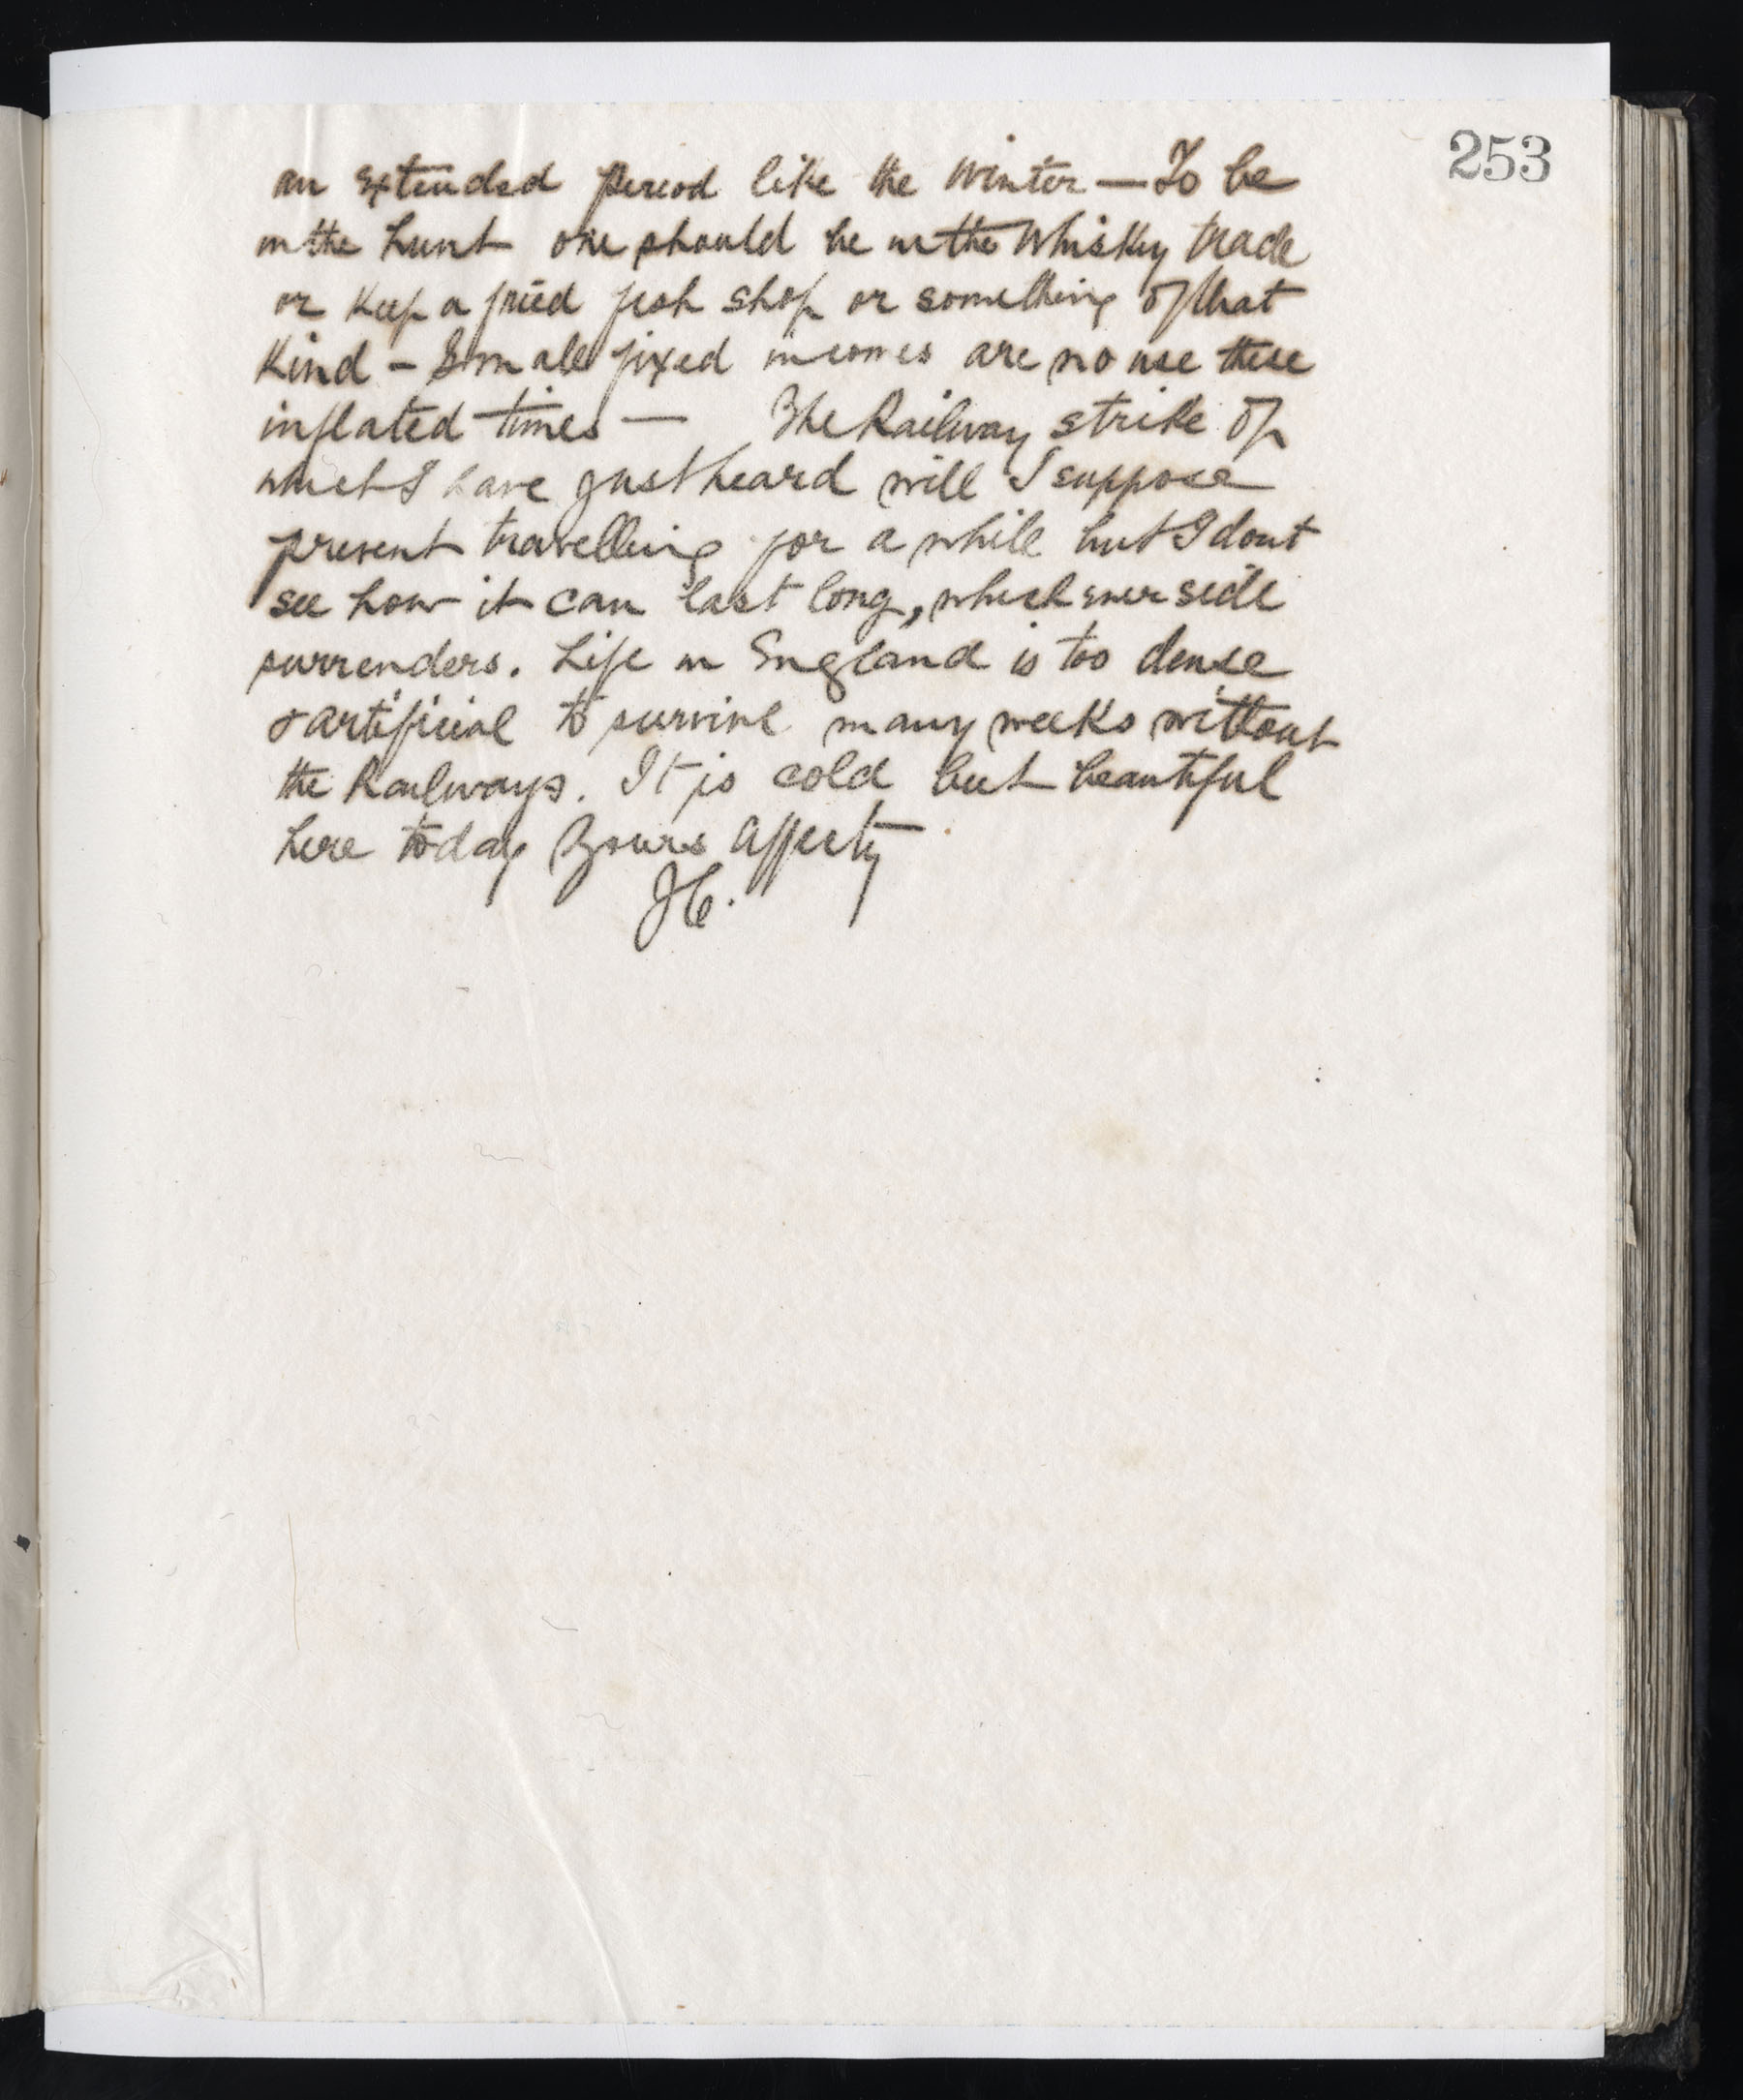 253
an extended period like the Winter — To be
in the hunt one should be in the Whisky trade
or keep a fried fish shop or something of that
kind – Small fixed incomes are no use these
inflated times — The Railway strike of
which I have just heard will I suppose
prevent travelling for a while but I dont
see how it can last long, whichever side
surrenders. Life in England is too dense
& artificial to survive many weeks without
the Railways. It is cold but beautiful
here today Yours affectly
JC.